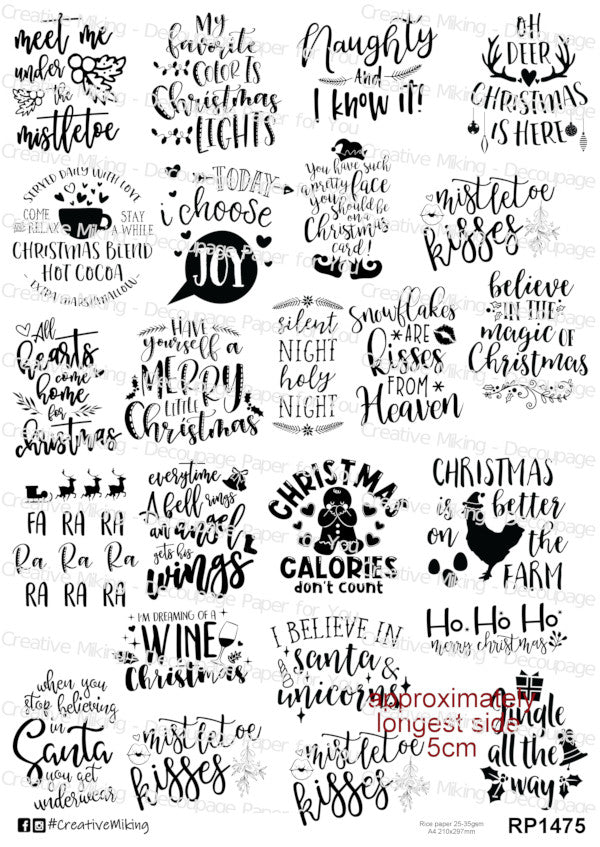 meet me
under
the
mistletoe
My
favorite
COLOR IS
Christmas
LIGHTS
Naughty
And
I know it!
OH
DEER
CHRISTMAS
IS HERE
SERVED DAILY WITH LOVE
COME AND RELAX
STAY A WHILE
CHRISTMAS BLEND
HOT COCOA
EXTRA MARSHMALLOW
TODAY
i choose
JOY
You have such
a pretty face
you
should be
on a
Christmas
card!
mistletoe
kisses
All
Hearts
come
home
for
christmas
HAVE
yourself a
MERRY
LITTLE
Christmas
silent
NIGHT
holy
NIGHT
Snowflakes
ARE
Kisses
FROM
Heaven
believe
IN THE
magic OF
Christmas
FA RA RA
Ra Ra Ra Ra
RA RA RA
everytime
A bell rings
an angel
gets his
wings
CHRISTMAS
CALORIES
don't count
CHRISTMAS
is better
on the
FARM
I'M DREAMING OF A
WINE
Christmas
I BELIEVE IN
santa &
unicorns
Ho. Ho Ho
merry christmas
when you
stop believing
in
Santa
you get
underwear
mistletoe
kisses
mistletoe
kisses
approximately
longest side
5cm
Jingle
all the
way
#CreativeMiking
Rice paper 25-35gsm
A4 210x297mm
RP1475
Creative Miking - Decoupage Paper for You